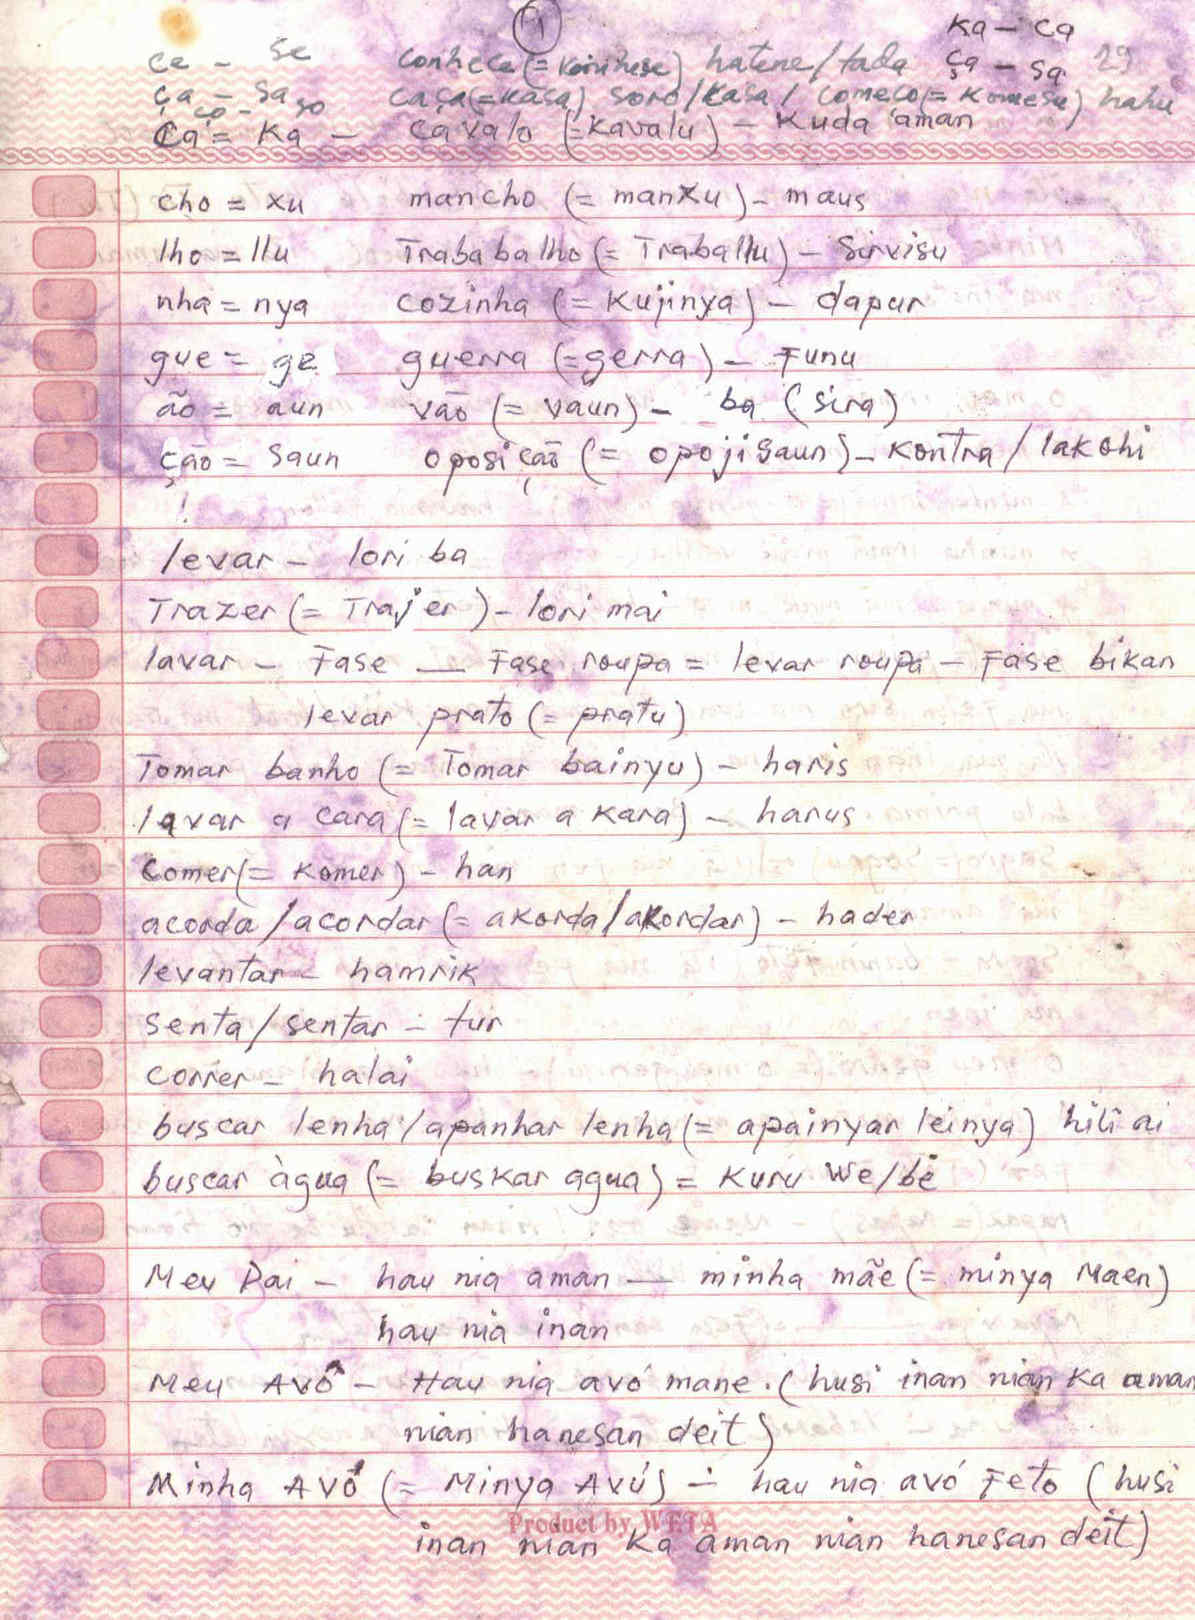 1
Ka - Ca
ce - se conhece (= koinhese) hatene/fada ça - sa 29
ça - sa caça (= kasa) soro/kasa / comeco (= komesu) hahu
ço - so
Ca = Ka - cavalo (= kavalu) - Kuda aman
cho = xu mancho (= manxu) - maus
lho = llu Trababalho (= Traballu) - Sirvisu
nha = nya cozinha (= Kujinya) - dapur
gue = ge guerra (= gerra) - Funu
ão = aun vão (= vaun) - ba (sira)
ção = saun oposição (= opojisaun) - Kontra / lakohi
!
levar - lori ba
Trazer (= Trajer) - lori mai
lavar - Fase — Fase roupa = levar roupa - Fase bikan
levar prato (= pratu)
Tomar banho (= Tomar bainyu) - haris
lavar a cara (= lavar a kara) - harus
Comer (= Komer) - han
acorda / acordar (= akorda / akordar) - hader
levantar - hamrik
senta / sentar - tur
correr - halai
buscar lenha / apanhar lenha (= apainyar leinya) hili ai
buscar àgua (= buskar agua) = Kuru We/bé
Meu Pai - hau nia aman — minha mãe (= minya Maen)
hau nia inan
Meu Avô - Hau nia avó mane. (husi inan nian Ka aman
nian hanesan deit)
Minha Avó (= Minya Avú) - hau nia avó Feto (husi
Product by WETA
inan nian Ka aman nian hanesan deit)